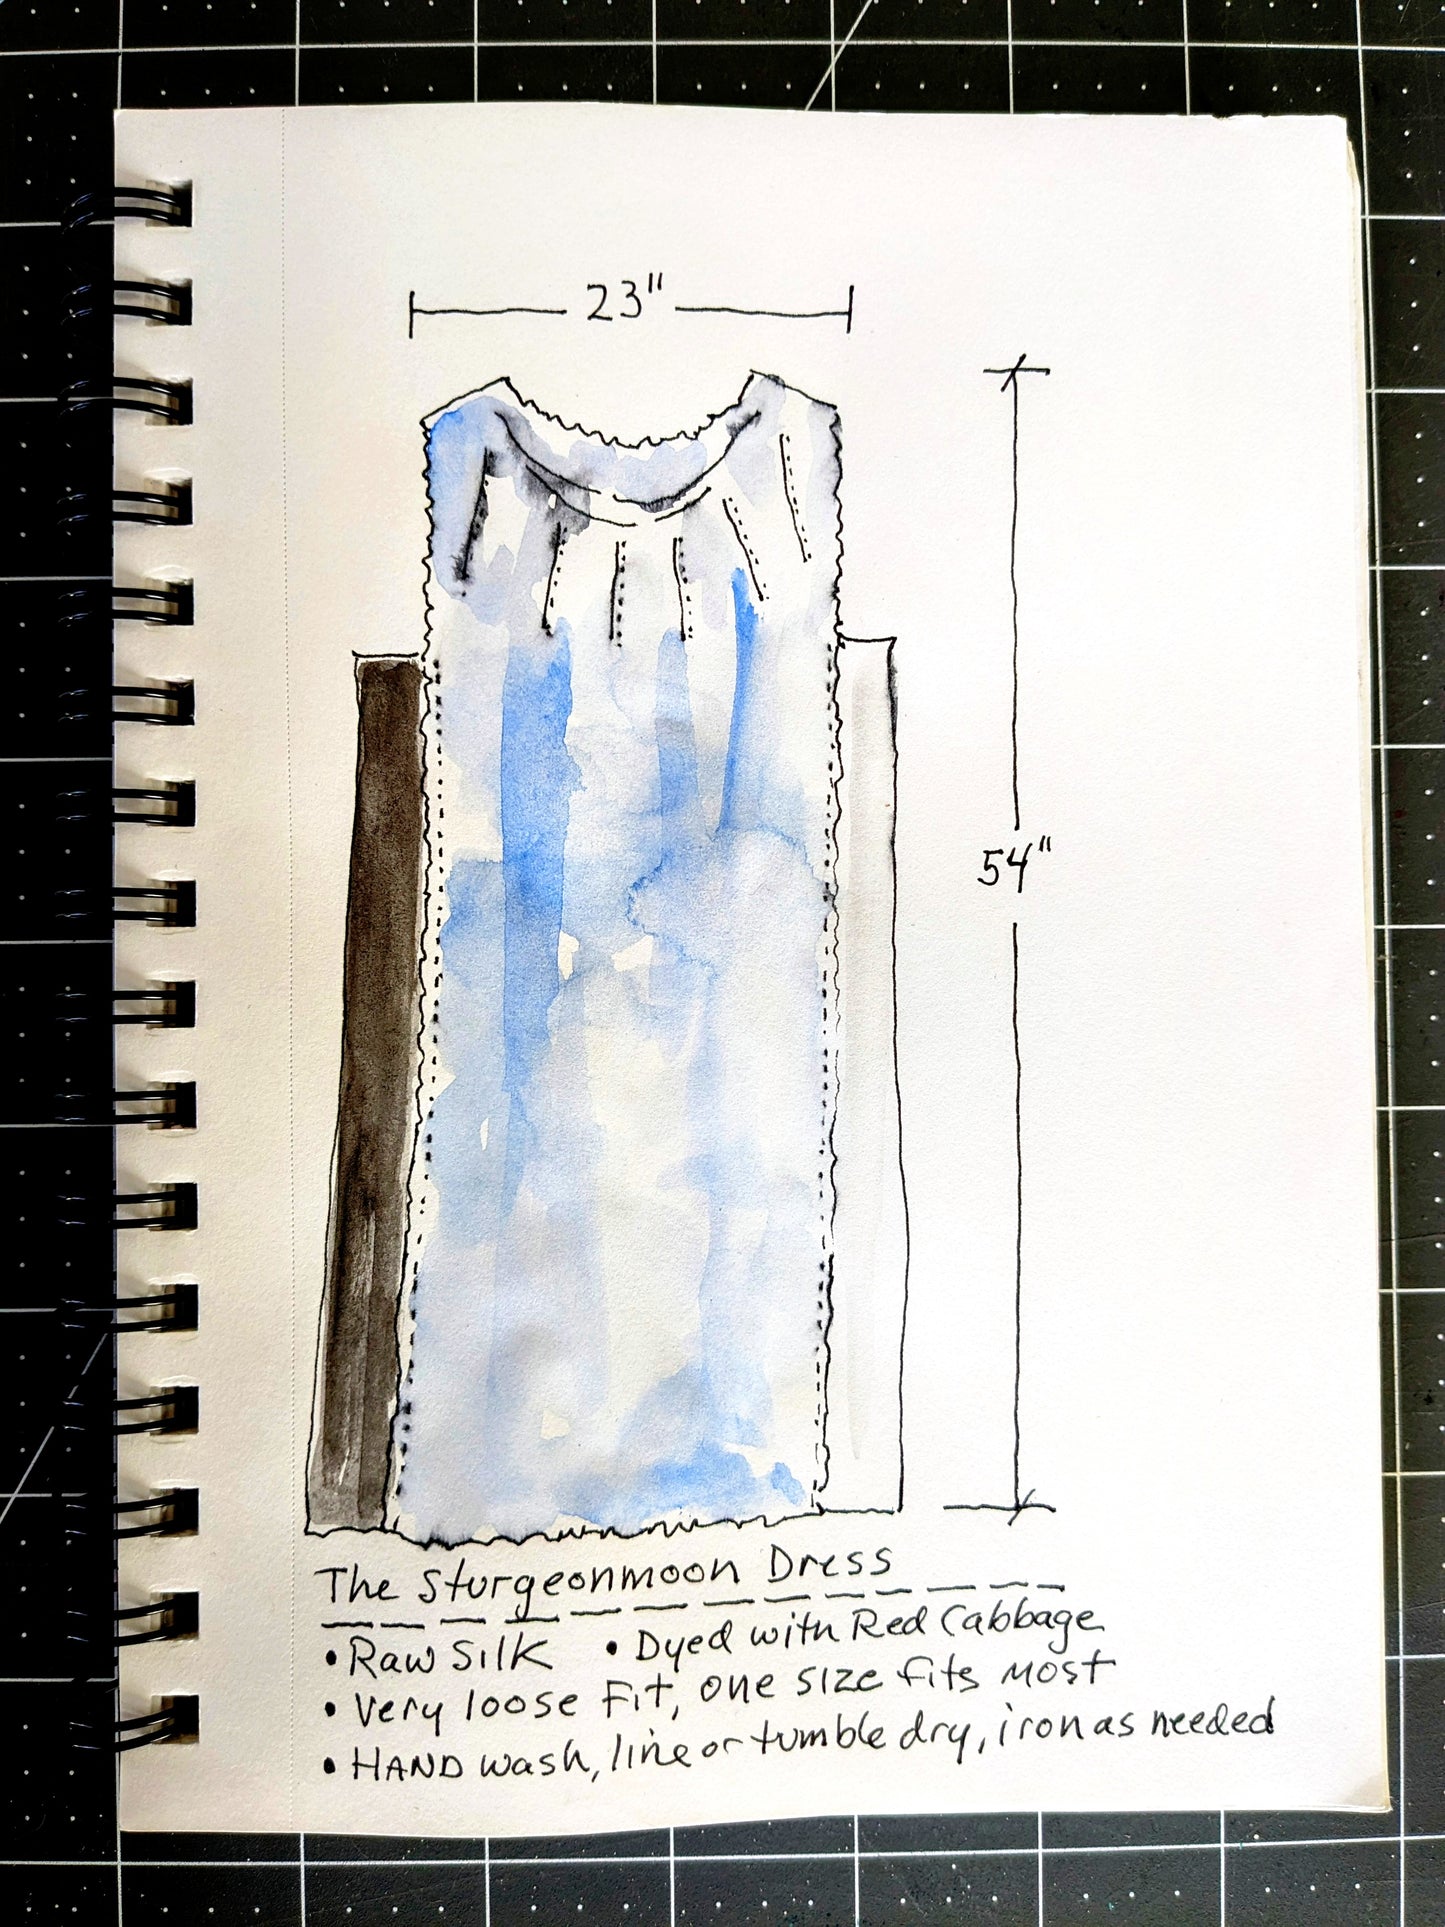 23"
54"
The Sturgeonmoon Dress
• Raw Silk • Dyed with Red Cabbage
• Very loose Fit, one size fits most
• HAND wash, line or tumble dry, iron as needed